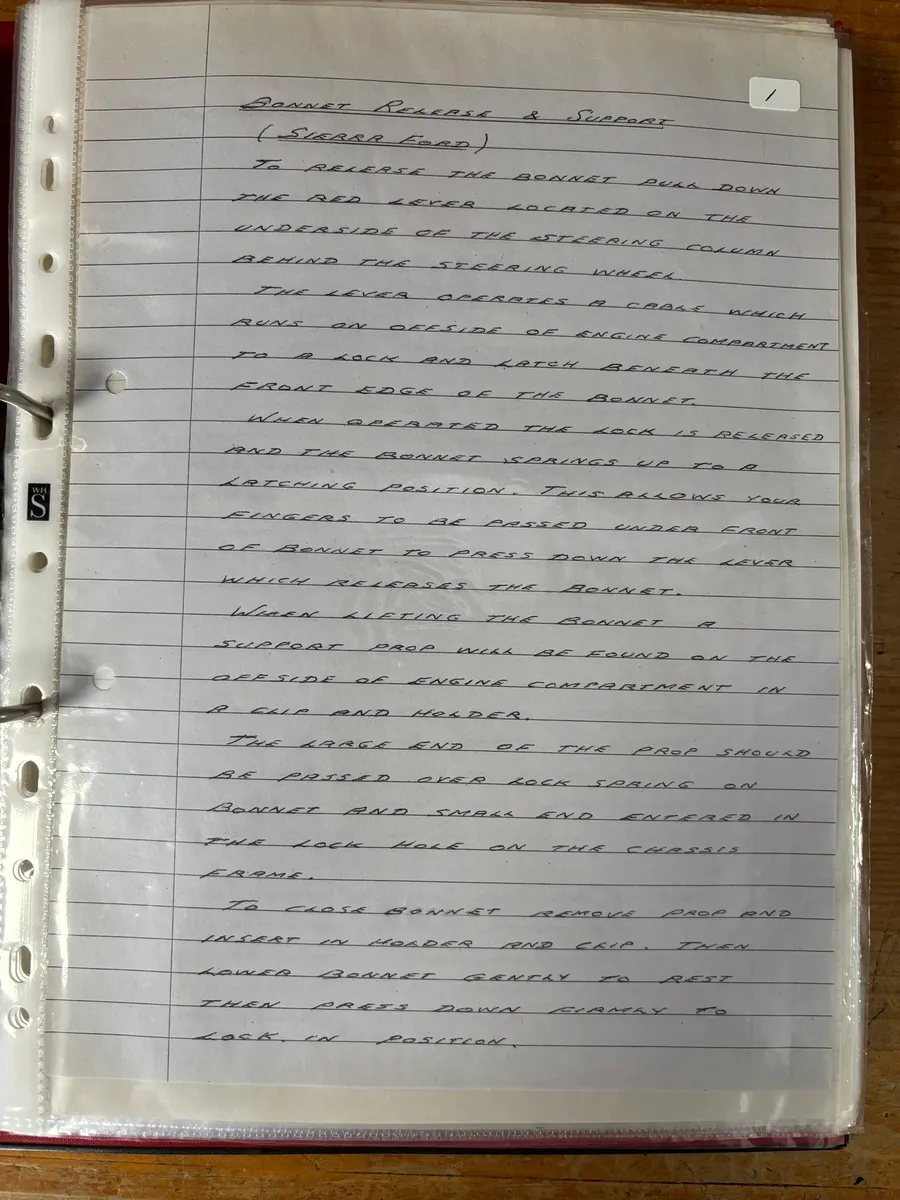 1
BONNET RELEASE & SUPPORT
(SIERRA FORD)
TO RELEASE THE BONNET PULL DOWN
THE RED LEVER LOCATED ON THE
UNDERSIDE OF THE STEERING COLUMN
BEHIND THE STEERING WHEEL.
THE LEVER OPERATES A CABLE WHICH
RUNS ON OFFSIDE OF ENGINE COMPARTMENT
TO A LOCK AND LATCH BENEATH THE
FRONT EDGE OF THE BONNET.
WHEN OPERATED THE LOCK IS RELEASED
AND THE BONNET SPRINGS UP TO A
LATCHING POSITION. THIS ALLOWS YOUR
FINGERS TO BE PASSED UNDER FRONT
OF BONNET TO PRESS DOWN THE LEVER
WHICH RELEASES THE BONNET.
WHEN LIFTING THE BONNET A
SUPPORT PROP WILL BE FOUND ON THE
OFFSIDE OF ENGINE COMPARTMENT IN
A CLIP AND HOLDER.
THE LARGE END OF THE PROP SHOULD
BE PASSED OVER LOCK SPRING ON
BONNET AND SMALL END ENTERED IN
THE LOCK HOLE ON THE CHASSIS
FRAME.
TO CLOSE BONNET REMOVE PROP AND
INSERT IN HOLDER AND CLIP. THEN
LOWER BONNET GENTLY TO REST
THEN PRESS DOWN FIRMLY TO
LOCK. IN POSITION.
WH
S